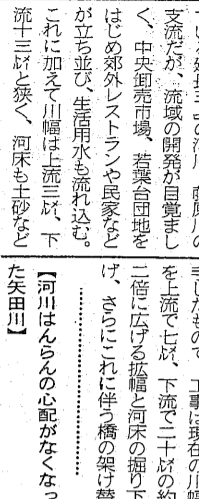 支流だが、流域の開発が目覚まし
く、中央卸売市場、若葉台団地を
はじめ郊外レストランや民家など
が立ち並び、生活用水も流れ込む。
これに加えて川幅は上流三㍍、下
流十三㍍と狭く、河床も土砂など
工事は現在の川幅
を上流で七㍍、下流で二十㍍の約
二倍に広げる拡幅と河床の掘り下
げ、さらにこれに伴う橋の架け替
【河川はんらんの心配がなくなっ
た矢田川】